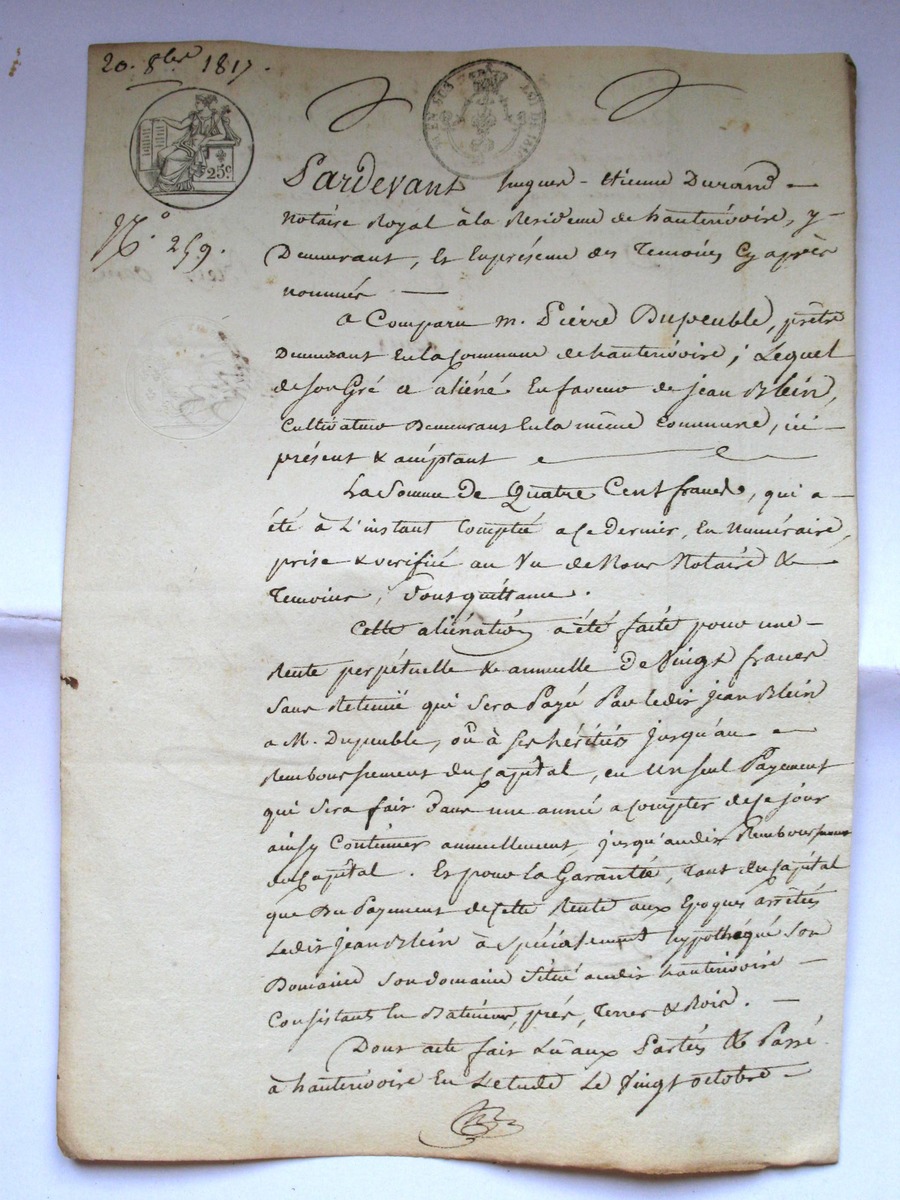 20. 8bre 1817.
25c
N.o 259.
Pardevant hugues-Etienne Durand
Notaire Royal à la Residence de hauterivoire, y
Demeurant, Et Enprésence des Temoins Cy après
nommés
a Comparu m. Pierre Dupeuble, prêtre
Demeurant En la Commune de hauterivoire; Lequel
de son Gré a aliéné En faveur de jean Blein,
Cultivateur Demeurant En la même Commune, ici
présent & acceptant
La Somme de Quatre Cent francs, qui a
été à L'instant Comptée a ce Dernier, En Numéraire,
prise & verifiée au Vu de Nous Notaire &
Temoins, Dont quittance.
Cette aliénation a été faite pour une
Rente perpétuelle & annuelle de Vingt francs
Sans Retenue qui Sera Payée Par ledit jean Blein
a M. Dupeuble, où à Ses héritiers jusqu'au
Remboursement du Capital, en Un Seul Payement
qui Sera fait Dans une année a Compter de Ce jour
ainsy Continuer annuellement jusqu'audit Remboursement
du Capital. Et pour la Garantie, Tant du Capital
que Du Payement de Cette Rente aux Epoques arrêtées
Ledit jean Blein à Spécialement hypothéqué Son
Domaine Son domaine Situé audit hauterivoire
Consistant En Batiments, prés, Terres & Bois.
Dont acte fait Lu aux Parties & Passé
à hauterivoire En L'etude Le Vingt octobre